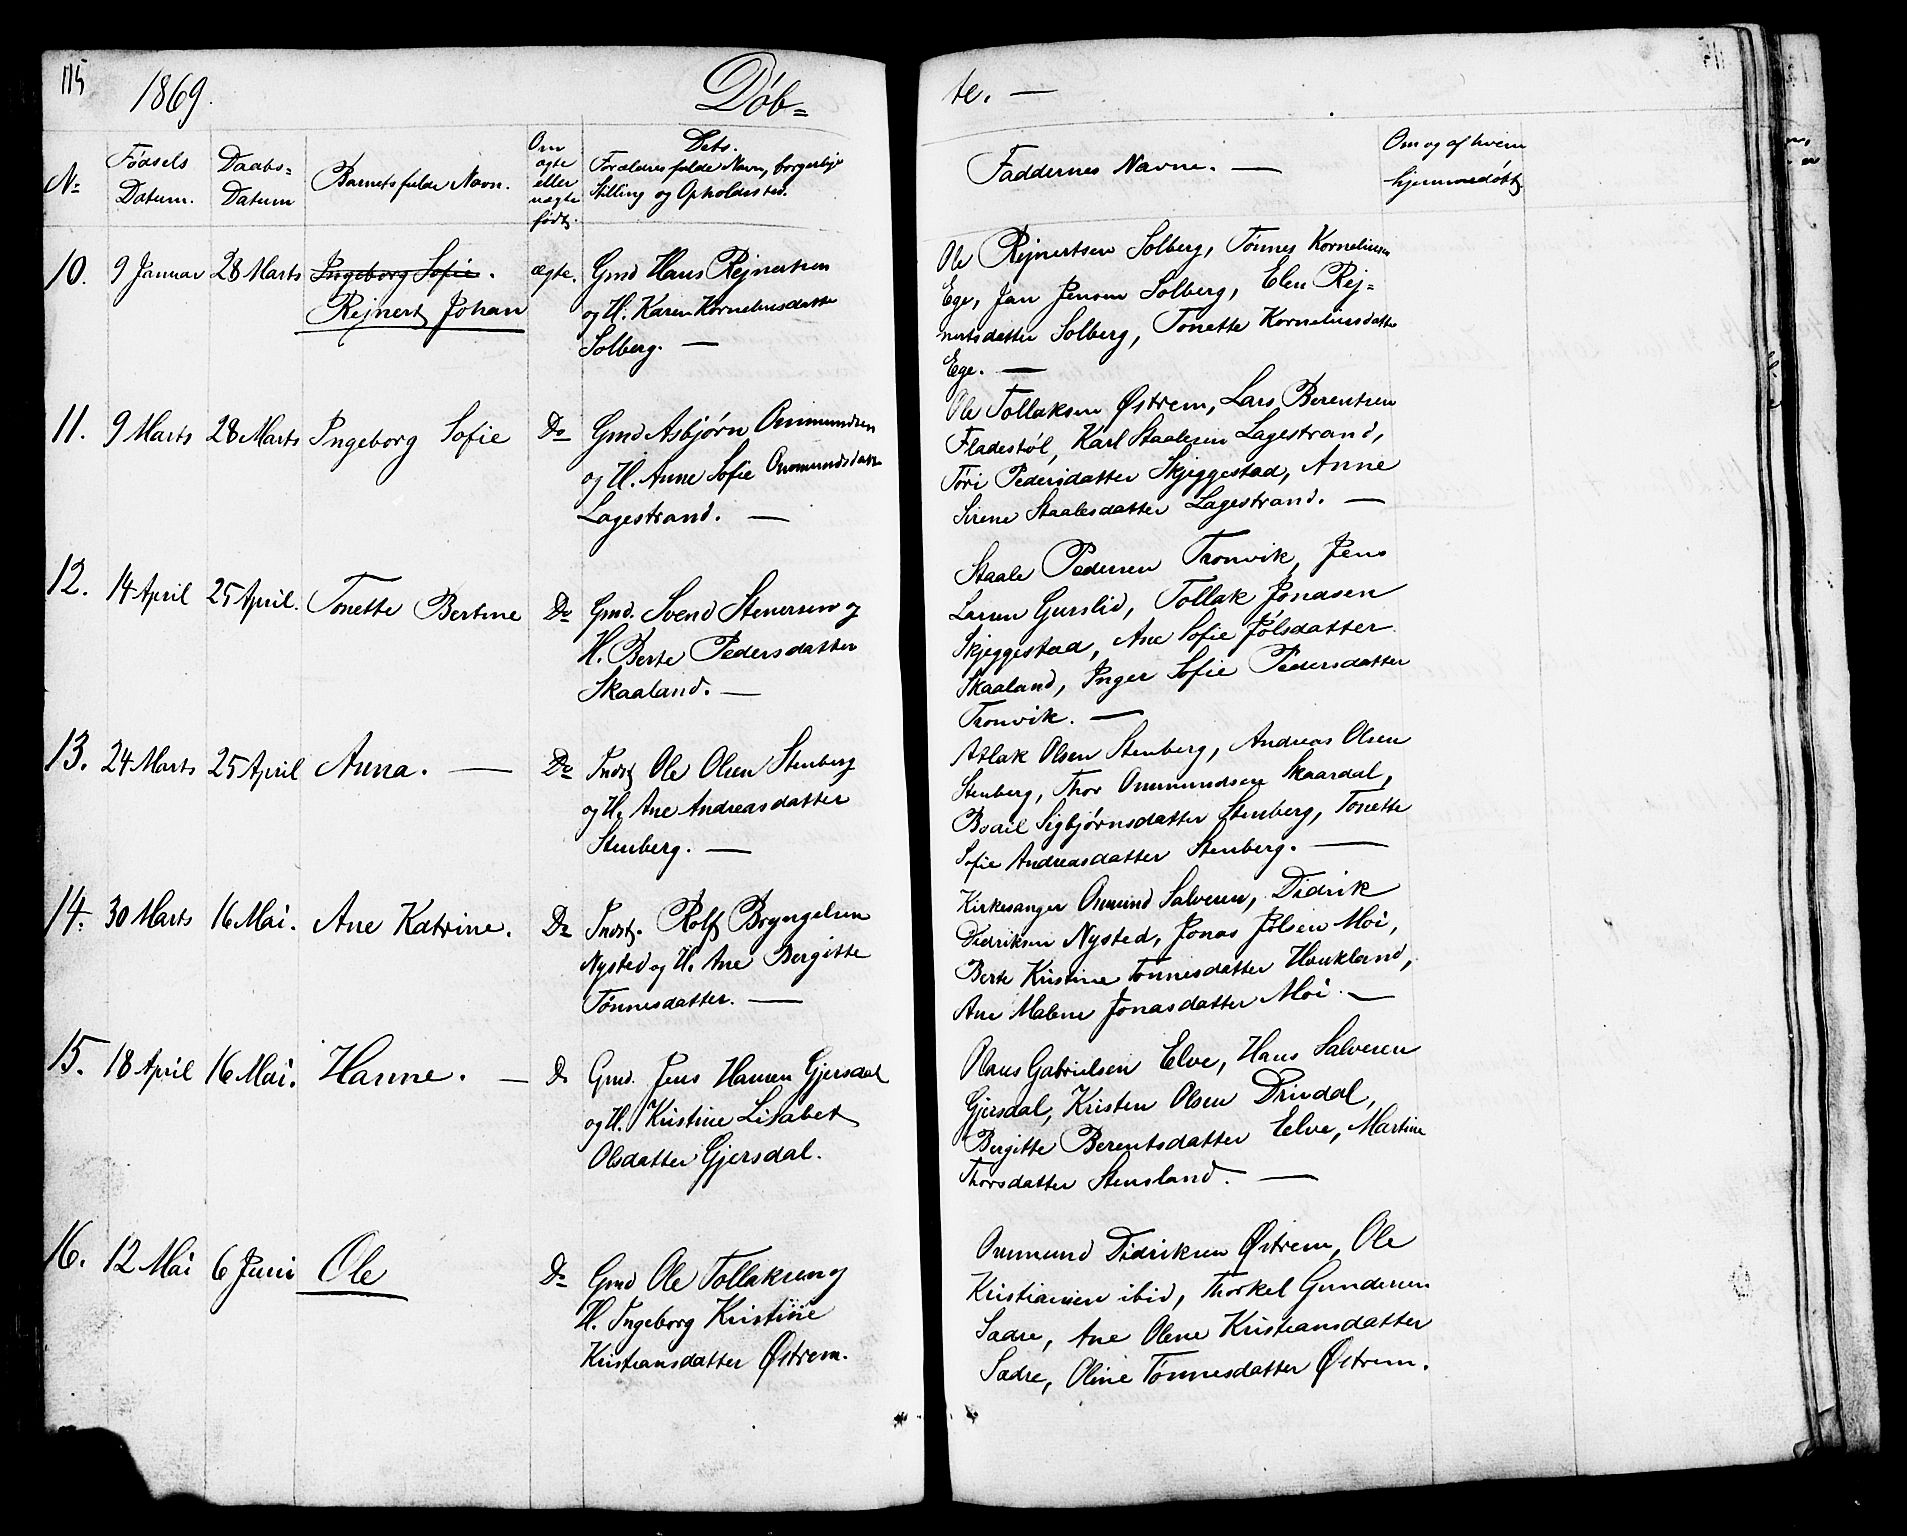 115
1869.
Døb=
te. —
No
Fødsels
Datum.
Daabs=
Datum
Barnets fulde Navn.
Om
ægte
eller
uægte
født.
Dets.
Forældres fulde Navn, borgerlige
Stilling og Opholdssted.
Faddernes Navne. —
Om og af hvem
hjemmedøbt
10. 9 Januar 28 Marts Ingeborg Sofie. ægte. Gmd Hans Rejnertsen
Rejnert Johan og H. Karen Korneliusdatter
Solberg. —
Ole Rejnertsen Solberg, Tønnes Korneliusen
Ege, Jan Jensen Solberg, Elen Rej=
nertsdatter Solberg, Tonette Korneliusdatter
Ege. —
11. 9 Marts 28 Marts Ingeborg Sofie Do Gmd Asbjørn Ommundsen
og H. Anne Sofie Ommundsdatter
Lagestrand. —
Ole Tollaksen Østrem, Lars Berentsen
Fladestøl, Karl Staalesen Lagestrand,
Tøri Pedersdatter Skjeggestad, Anne
Sirene Staalesdatter Lagestrand. —
12. 14 April 25 April. Tonette Bertine Do Gmd. Svend Stenersen og
H. Berte Pedersdatter
Skaaland. —
Staale Pedersen Tronvik, Jens
Larsen Gurslid, Tollak Jonasen
Skjeggestad, Ane Sofie Jølsdatter
Skaaland, Inger Sofie Pedersdatter
Tronvik. —
13. 24 Marts 25 April Anna. — Do Indst. Ole Olsen Stenberg
og H. Ane Andreasdatter
Stenberg. —
Atlak Olsen Stenberg, Andreas Olsen
Stenberg, Thor Ommundsen Skaardal,
Boail Sigbjørnsdatter Stenberg, Tonette
Sofie Andreasdatter Stenberg. —
14. 30 Marts 16 Mai. Ane Katrine. Do Indst. Rolf Bryngelsen
Nysted og H. Ane Bergitte
Tønnesdatter. —
Kirkesanger Ommund Salvesen, Didrik
Didriksen Nysted, Jonas Jølsen Moi,
Berte Kristine Tønnesdatter Haukland,
Ane Malene Jonasdatter Moi. —
15. 18 April 16 Mai. Hanne. — Do Gmd. Jens Hansen Gjersdal
og H. Kristine Lisabet
Olsdatter Gjersdal.
Olaus Gabrielsen Elve, Hans Salvesen
Gjersdal, Kristen Olsen Drivdal,
Bergitte Berentsdatter Elve, Martine
Thorsdatter Stensland. —
16. 12 Mai 6 Juni Ole Do Gmd Ole Tollaksen og
H. Ingeborg Kristine
Kristiansdatter Østrem.
Ommund Didriksen Østrem, Ole
Kristiansen ibid, Thorkel Gundersen
Sadre, Ane Olene Kristiansdatter
Sadre, Oline Tønnesdatter Østrem.